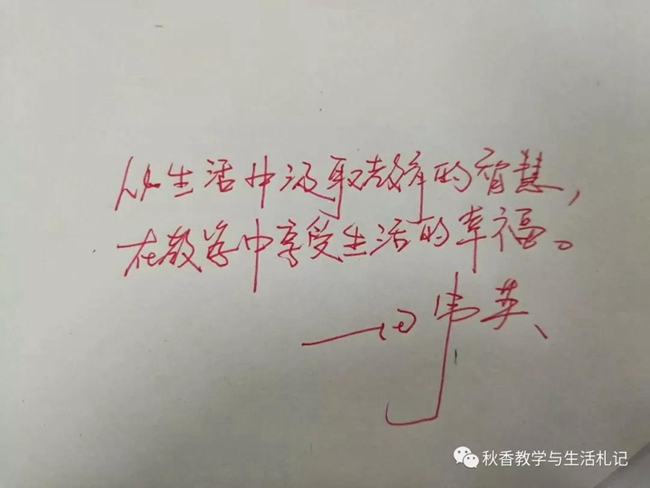 从生活中汲取教育的智慧，
在教学中享受生活的幸福。
——田伟英
秋香教学与生活札记